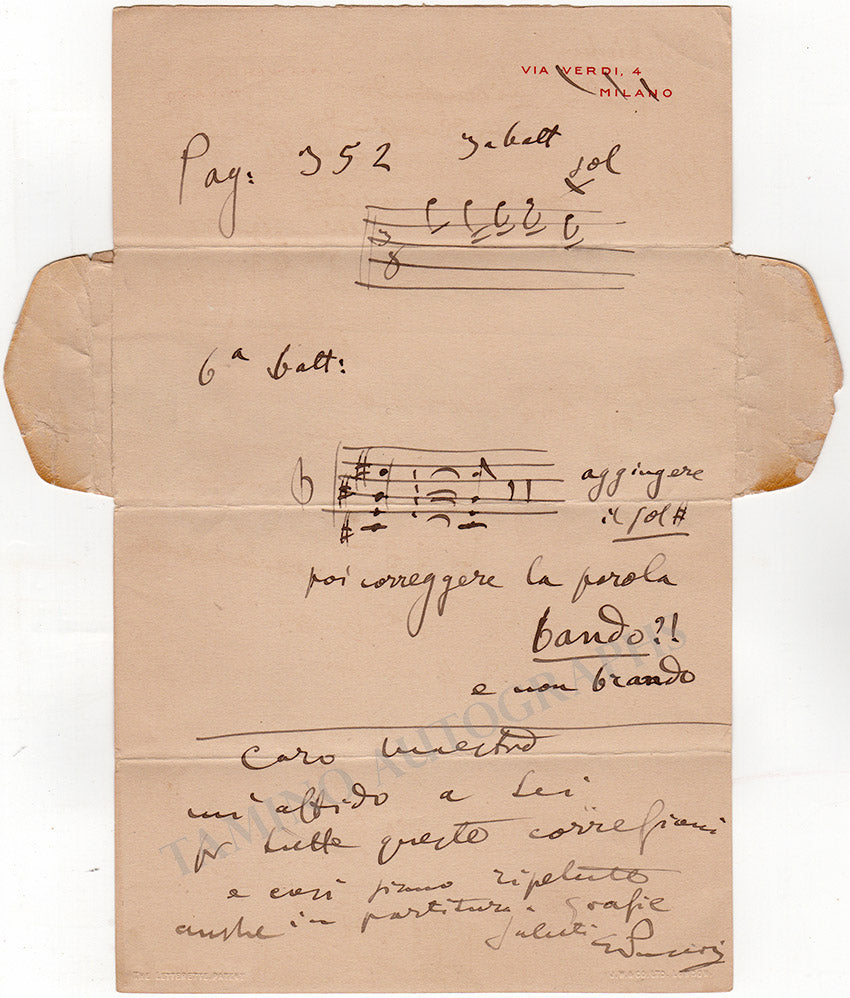 VIA VERDI, 4
MILANO
Pag: 352 3a batt
sol
3
8
6ª batt:
aggiungere
il sol #
poi correggere la parola
bando?!
e non brando
Caro Maestro
mi affido a Lei
pr tutte queste correzioni
e così siano ripetute
anche in partitura grazie
saluti GPuccini
TAMINO AUTOGRAPHS
THE LETTERETTE. PATENT